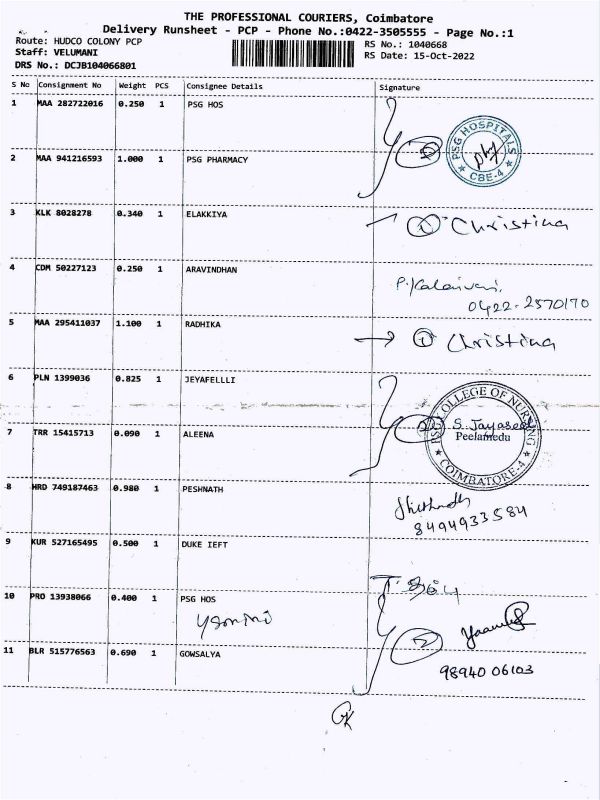 THE PROFESSIONAL COURIERS, Coimbatore
Delivery Runsheet - PCP - Phone No.:0422-3505555 - Page No.:1
Route: HUDCO COLONY PCP
Staff: VELUMANI
DRS No.: DCJB104066801
RS No.: 1040668
RS Date: 15-Oct-2022
S No Consignment No Weight PCS Consignee Details Signature
1 MAA 282722016 0.250 1 PSG HOS
PSG HOSPITALS
CBE-4
2 MAA 941216593 1.000 1 PSG PHARMACY
3 KLK 8028278 0.340 1 ELAKKIYA 1 Christina
4 CDM 50227123 0.250 1 ARAVINDHAN
0422-2570170
5 MAA 295411037 1.100 1 RADHIKA 1 Christina
6 PLN 1399036 0.825 1 JEYAFELLLI
PSG COLLEGE OF NURSING
Peelamedu
COIMBATORE-4
7 TRR 15415713 0.090 1 ALEENA
8 HRD 749187463 0.980 1 PESHNATH
8494933584
9 KUR 527165495 0.500 1 DUKE IEFT
10 PRO 13938066 0.400 1 PSG HOS
2
11 BLR 515776563 0.690 1 GOWSALYA
98940 06103